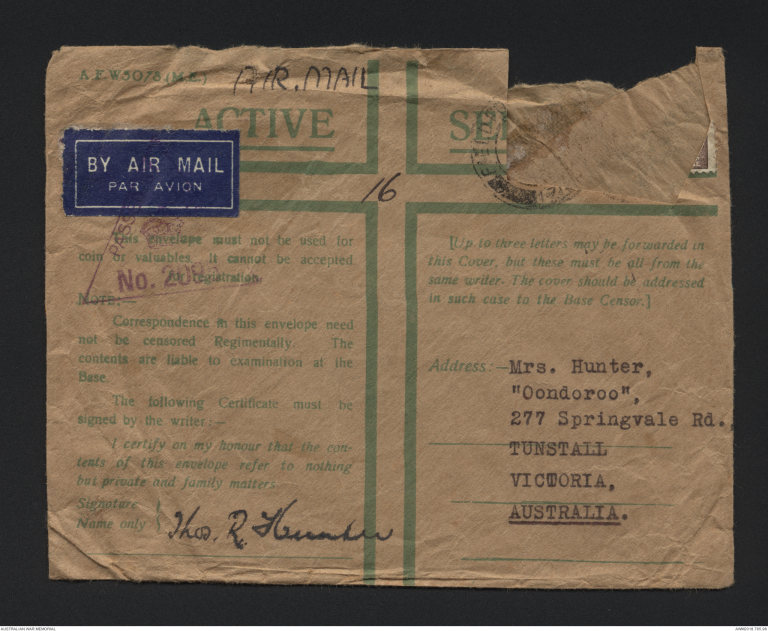 A F W3078 (M.E.)
AIR. MAIL
ACTIVE
BY AIR MAIL
PAR AVION
16
This envelope must not be used for
coin or valuables. It cannot be accepted
for registration.
No. 208
NOTE:—
Correspondence in this envelope need
not be censored Regimentally. The
contents are liable to examination at the
Base.
The following Certificate must be
signed by the writer:—
I certify on my honour that the con-
tents of this envelope refer to nothing
but private and family matters.
Signature
Name only
Thos. R. Hunter
[Up to three letters may be forwarded in
this Cover, but these must be all from the
same writer. The cover should be addressed
in such case to the Base Censor.]
Address:—Mrs. Hunter,
"Oondoroo",
277 Springvale Rd.,
TUNSTALL
VICTORIA,
AUSTRALIA.
AUSTRALIAN WAR MEMORIAL